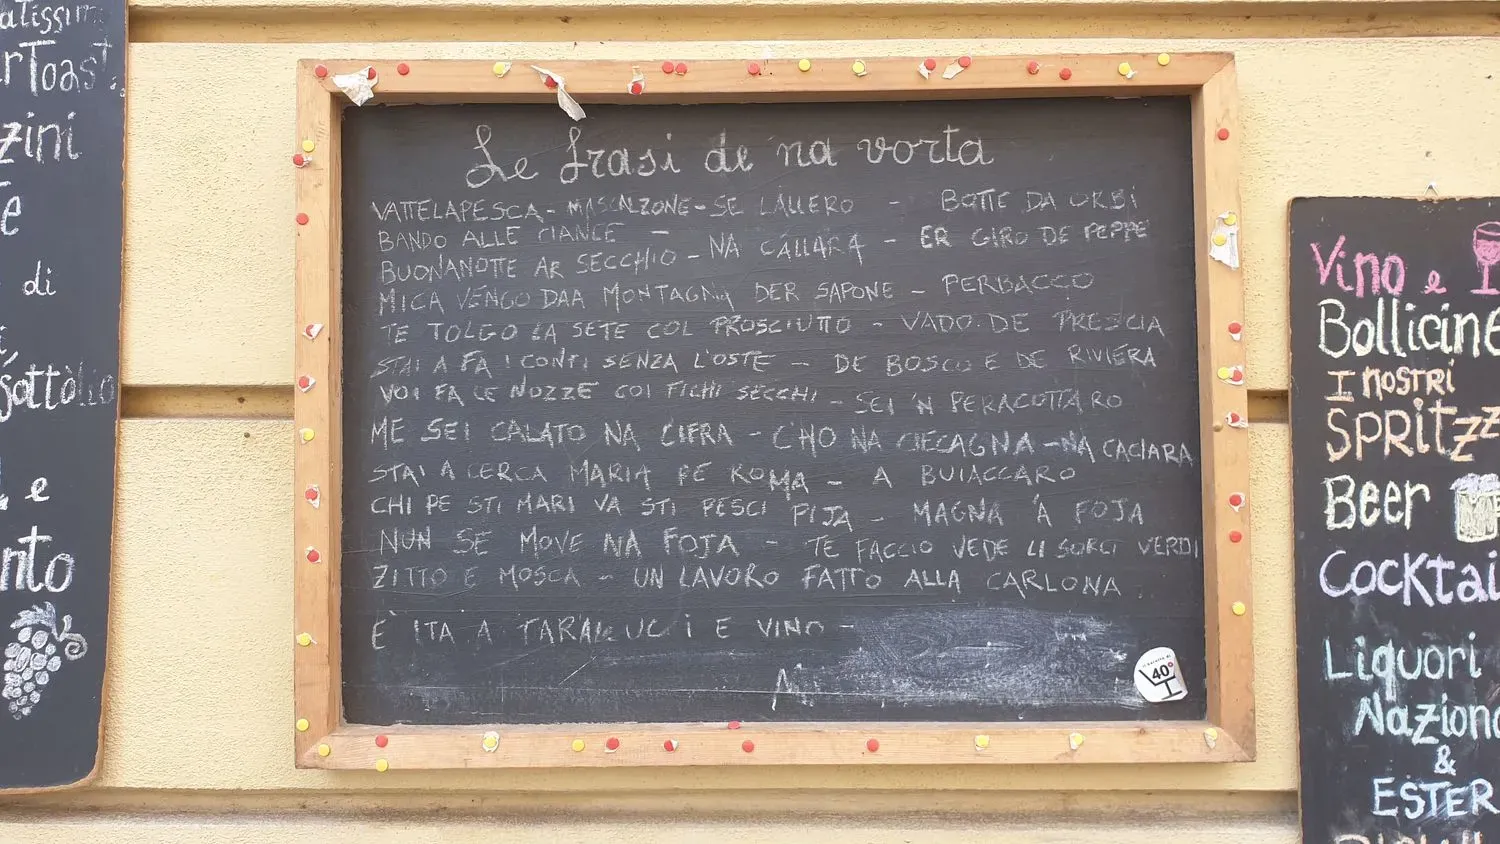 rToast
zini
e
di
sottòlio
e
nto
Le frasi de 'na vorta
VATTELAPESCA - MASCALZONE - SE LALLERO - BOTTE DA ORBI
BANDO ALLE CIANCE -
BUONANOTTE AR SECCHIO - NA CALLARA - ER GIRO DE PEPPE
MICA VENGO DAA MONTAGNA DER SAPONE - PERBACCO
TE TOLGO LA SETE COL PROSCIUTTO - VADO DE PRESCIA
STAI A FA I CONTI SENZA L'OSTE - DE BOSCO E DE RIVIERA
VOI FA LE NOZZE COI FICHI SECCHI - SEI 'N PERACOTTARO
ME SEI CALATO NA CIFRA - C'HO NA CIECAGNA - NA CACIARA
STAI A CERCA MARIA PE ROMA - A BUIACCARO
CHI PE STI MARI VA STI PESCI PIJA - MAGNA 'A FOJA
NUN SE MOVE NA FOJA - TE FACCIO VEDE LI SORCI VERDI
ZITTO E MOSCA - UN LAVORO FATTO ALLA CARLONA
È ITA A TARALLUCCI E VINO -
40°
Vino e
Bollicine
I NOSTRI
SPRITZZ
Beer
COCKtai
Liquori
Naziona
&
ESTER